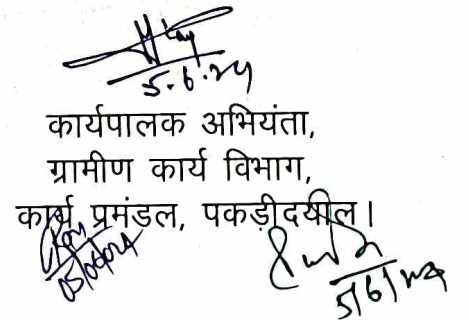 5.6.24
कार्यपालक अभियंता,
ग्रामीण कार्य विभाग,
कार्य प्रमंडल, पकड़ीदयाल।
05/06/24
5/6/24